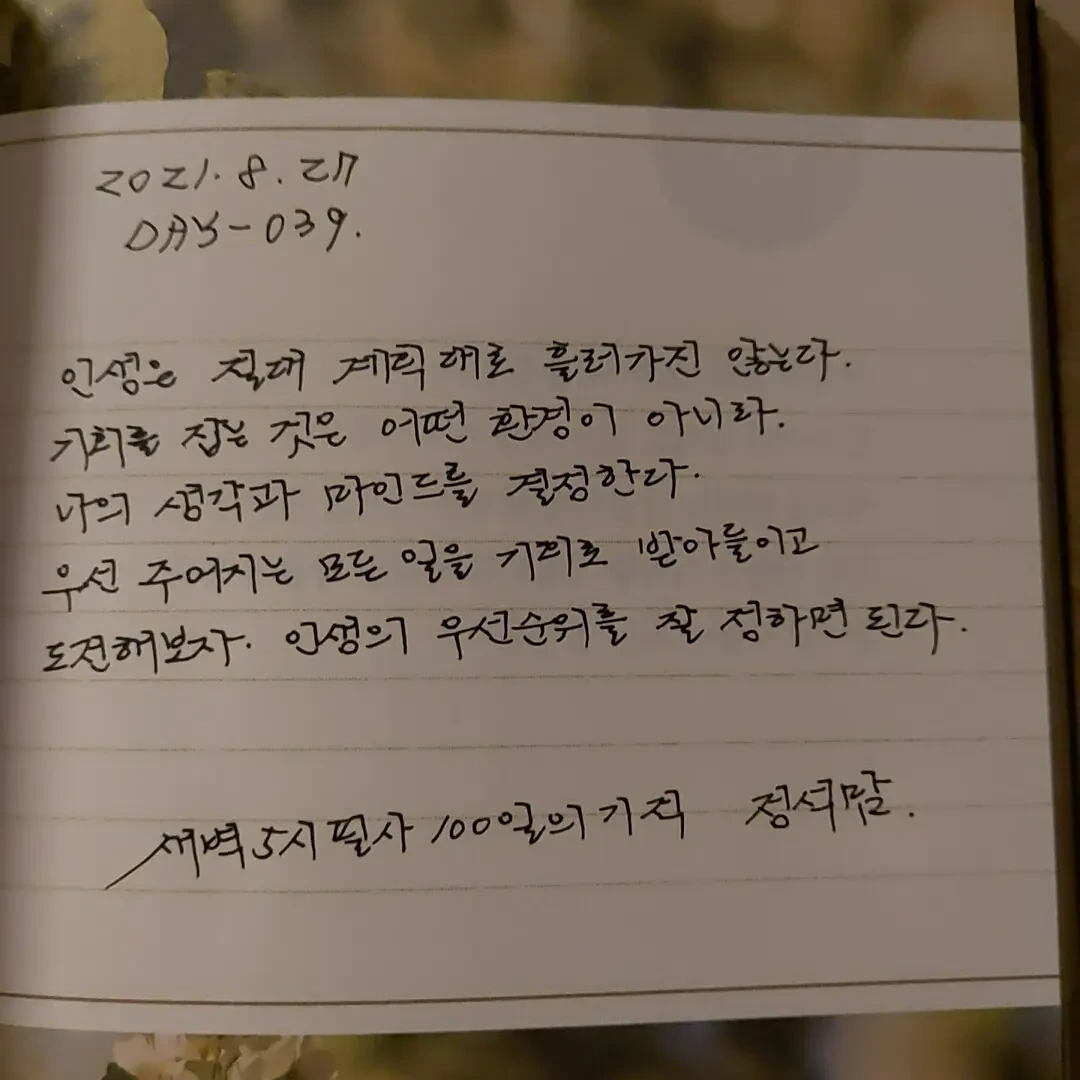 2021. 8. 27
DAY-039.
인생은 절대 계획대로 흘러가진 않는다.
기회를 잡는 것은 어떤 환경이 아니라.
나의 생각과 마인드를 결정한다.
우선 주어지는 모든 일을 기회로 받아들이고
도전해보자. 인생의 우선순위를 잘 정하면 된다.
새벽5시필사 100일의기적 정석맘.